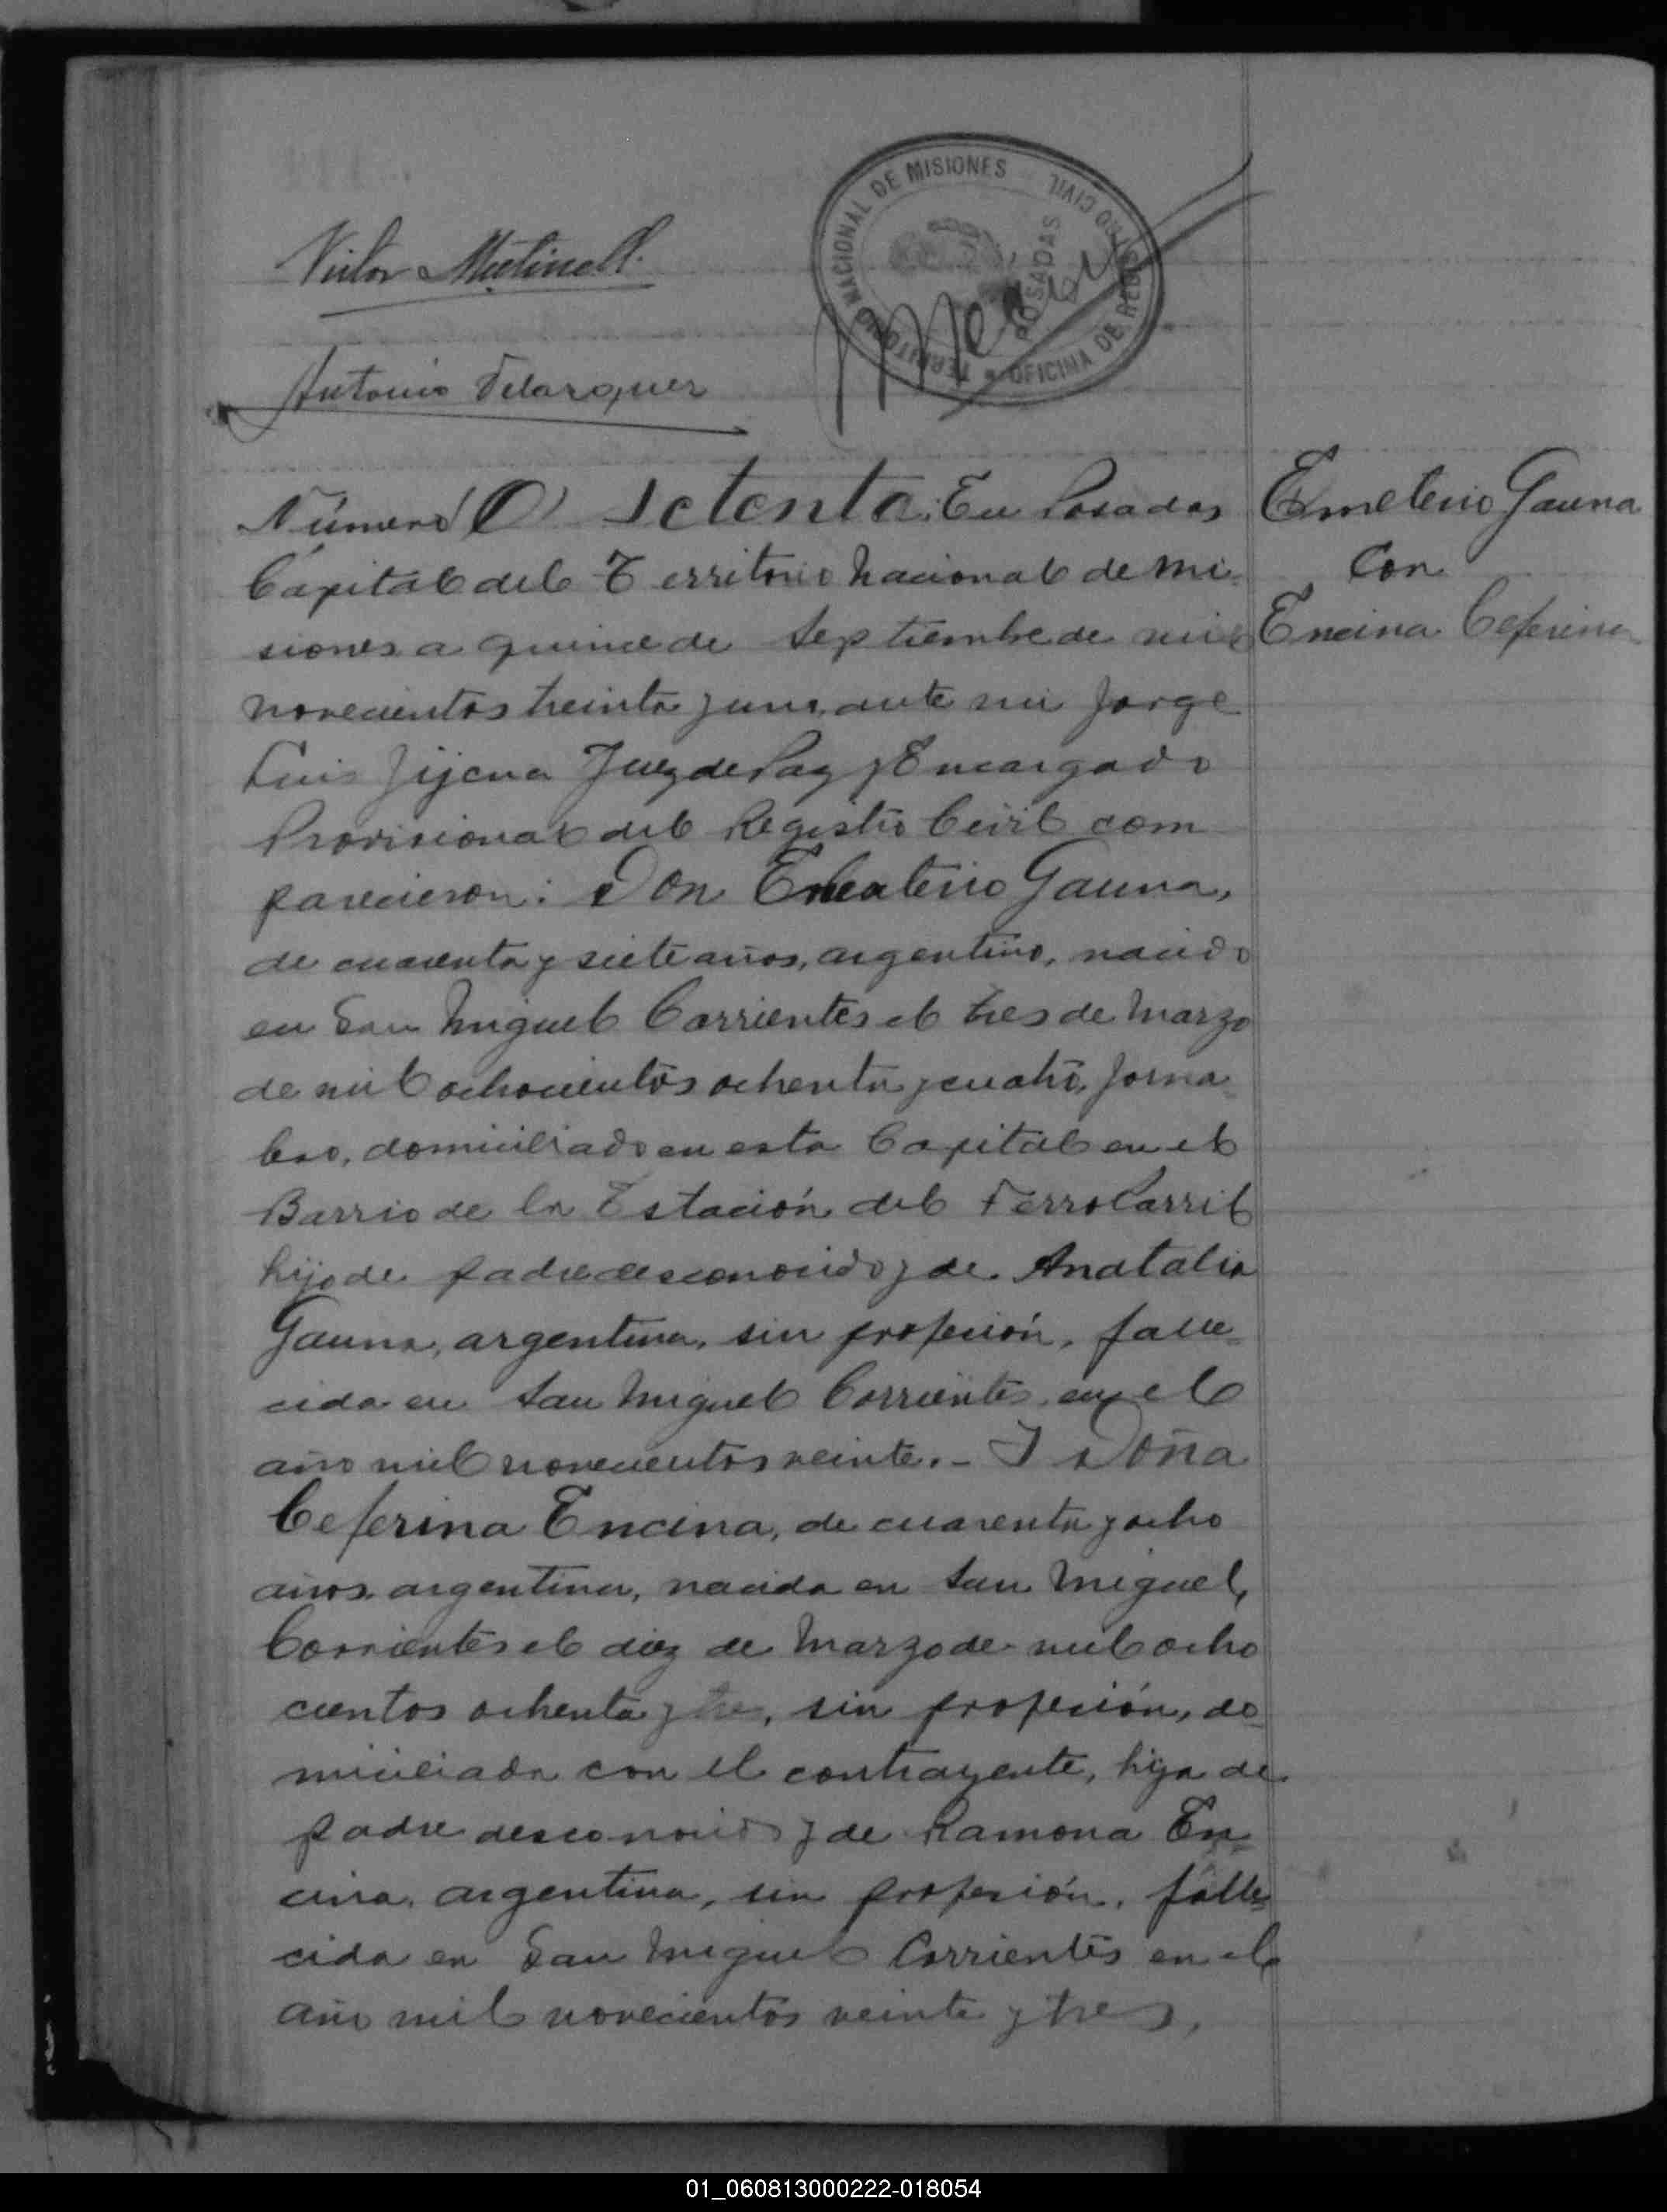 TERRITORIO NACIONAL DE MISIONES
OFICINA DE REGISTRO CIVIL
POSADAS
Victor
Antonio Velazquez
Número setenta: En Posadas
Capital del Territorio Nacional de Mi-
siones a quince de Septiembre de mil
novecientos treinta y uno, ante mi Jorge
Luis Jijena Juez de Paz y Encargado
Provisional del Registro Civil com
parecieron: Don Emeterio Gauna,
de cuarenta y siete años, argentino, nacido
en San Miguel Corrientes el tres de Marzo
de mil ochocientos ochenta y cuatro, jorna-
lero, domiciliado en esta Capital en el
Barrio de la Estación del FerroCarril
hijo de padre desconocido y de Anatalia
Gauna, argentina, sin profesión, falle-
cida en San Miguel Corrientes, en el
año mil novecientos veinte.- Y Doña
Ceferina Encina, de cuarenta y ocho
años, argentina, nacida en San Miguel,
Corrientes el diez de Marzo de mil ocho
cientos ochenta y tres, sin profesión, do-
miciliada con el contrayente, hija de
padre desconocido y de Ramona En-
cina, argentina, sin profesión, falle-
cida en San Miguel Corrientes en el
año mil novecientos veinte y tres,
Emeterio Gauna
Con
Encina Ceferina
01_060813000222-018054